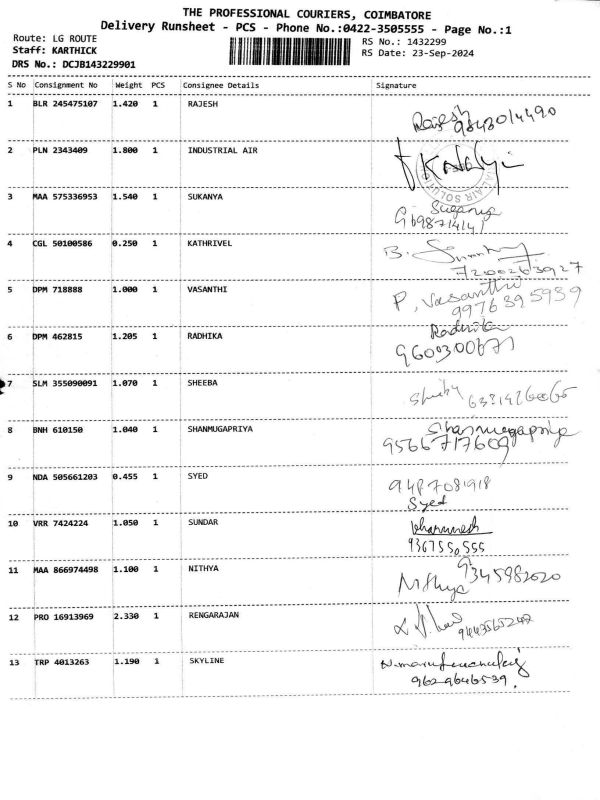 THE PROFESSIONAL COURIERS, COIMBATORE
Delivery Runsheet - PCS - Phone No.:0422-3505555 - Page No.:1
Route: LG ROUTE
RS No.: 1432299
Staff: KARTHICK
RS Date: 23-Sep-2024
DRS No.: DCJB143229901
S No Consignment No Weight PCS Consignee Details Signature
1 BLR 245475107 1.420 1 RAJESH
2 PLN 2343409 1.800 1 INDUSTRIAL AIR
3 MAA 575336953 1.540 1 SUKANYA
Suganya
4 CGL 50100586 0.250 1 KATHRIVEL
B.
7200263927
5 DPM 718888 1.000 1 VASANTHI P. Vasanthi
9976395939
6 DPM 462815 1.205 1 RADHIKA Radhika
7 SLM 355090091 1.070 1 SHEEBA
8 BNH 610150 1.040 1 SHANMUGAPRIYA Shanmugapriya
9566717609
9 NDA 505661203 0.455 1 SYED 9487081918
Syed
10 VRR 7424224 1.050 1 SUNDAR
9367550555
11 MAA 866974498 1.100 1 NITHYA 9345982020
Nithya
12 PRO 16913969 2.330 1 RENGARAJAN
9443565242
13 TRP 4013263 1.190 1 SKYLINE
9629646539.